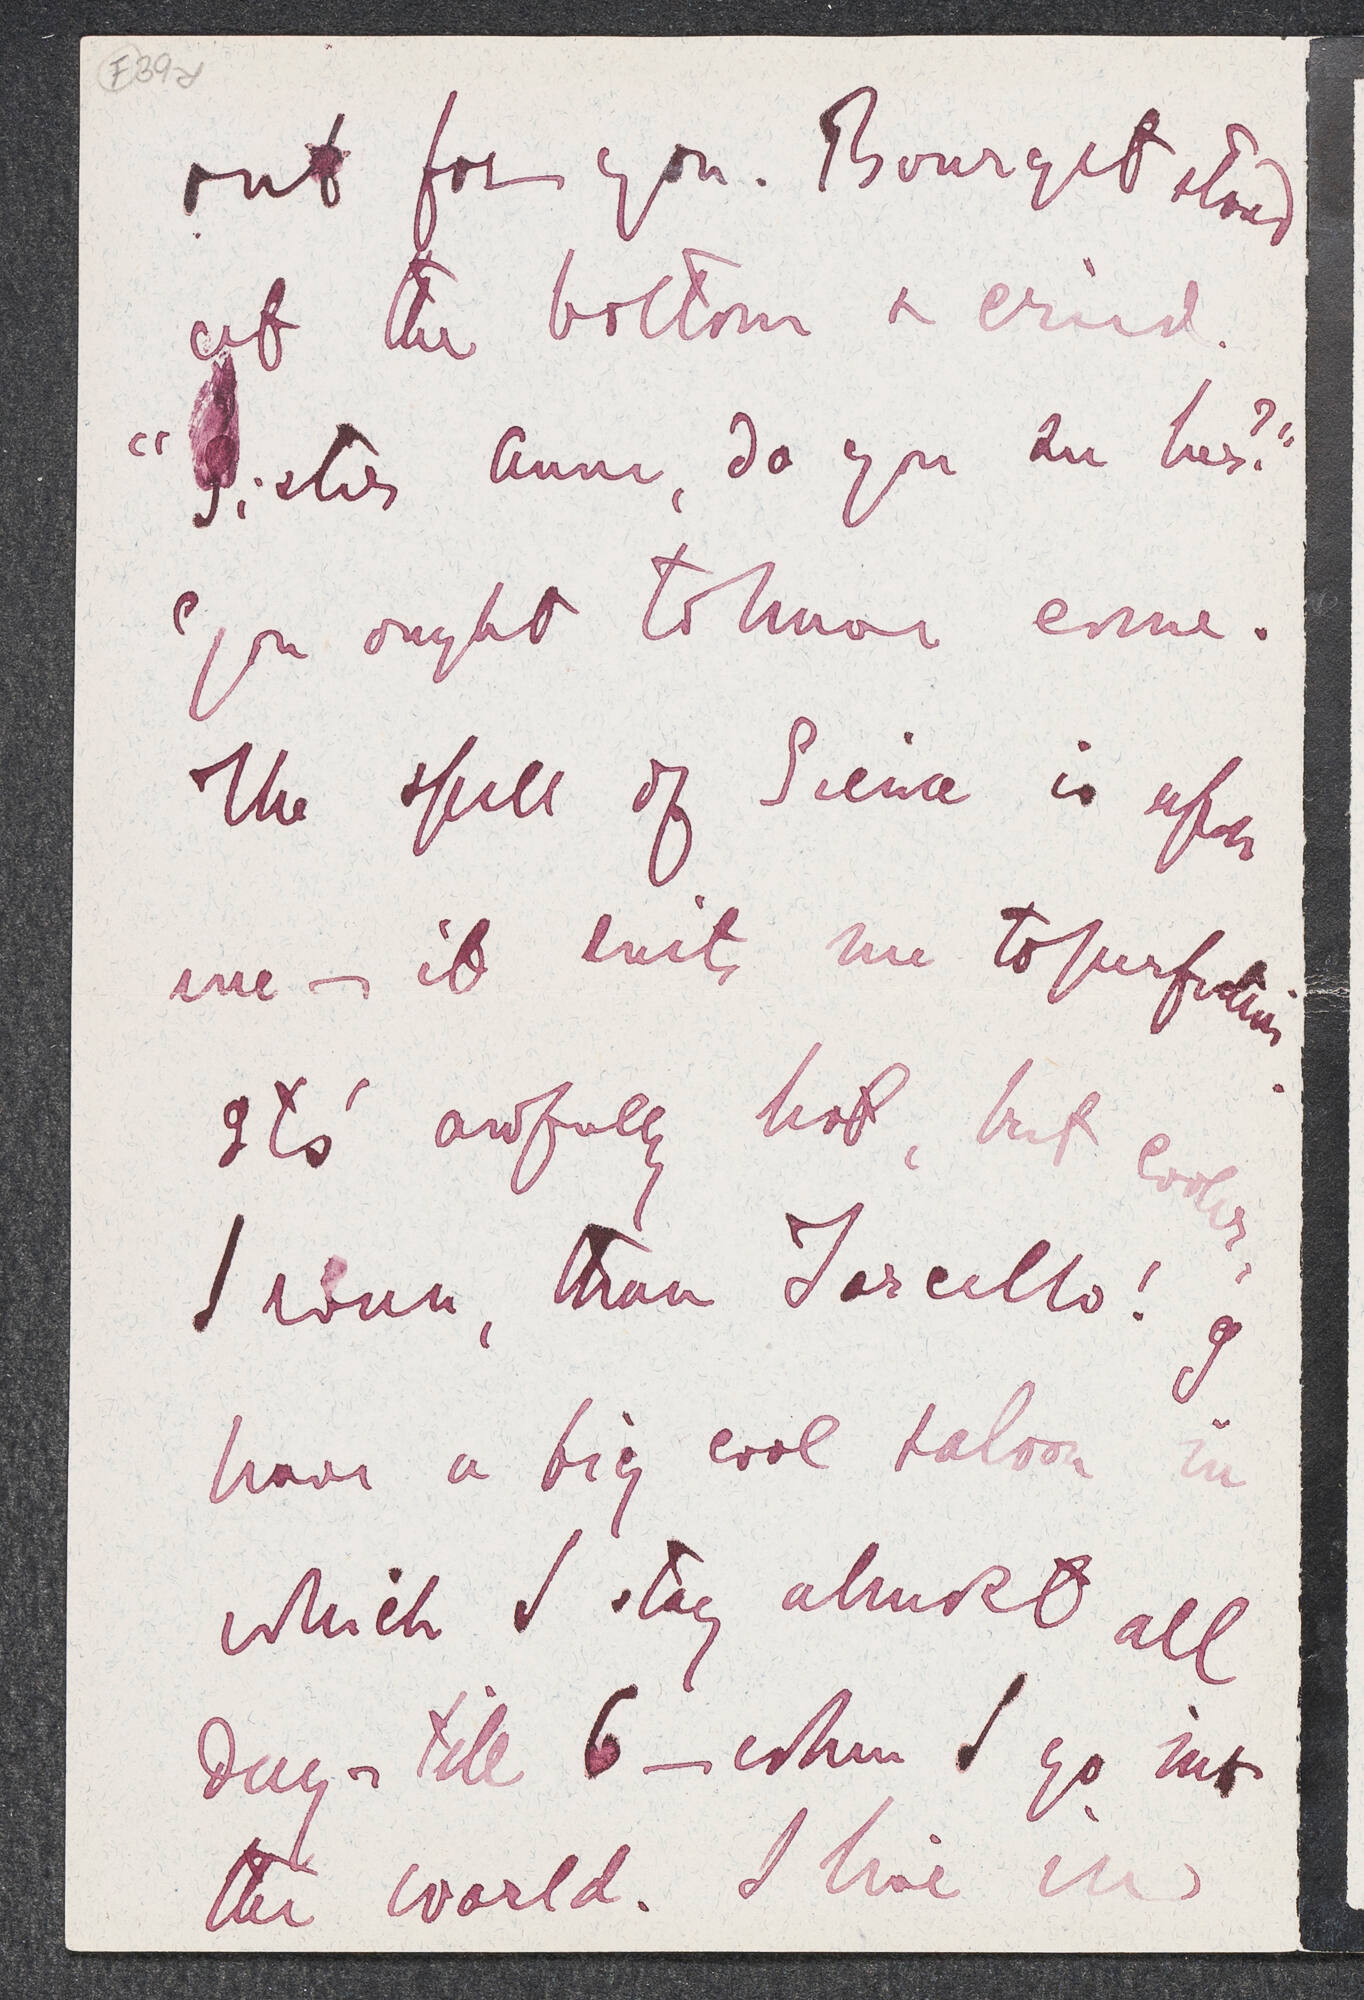 F39d
out for you. Bourget stood
at the bottom & cried.
"Sister Anne, do you see her?"
You ought to have come.
The spell of Siena is upon
me — it suits me to perfection.
It's awfully hot, but cooler,
I vow, than Torcello! I
have a big cool saloon in
which I stay almost all
day — till 6 — when I go into
the world. I live in